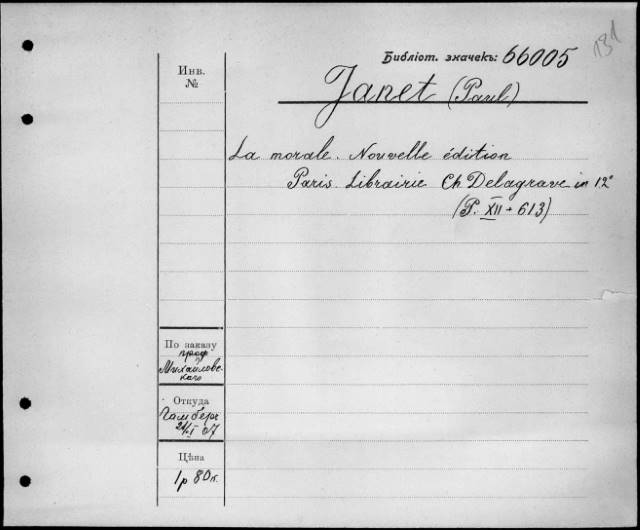 131
Библіот. значекъ: 66005
Инв.
№
Janet (Paul)
La morale. Nouvelle édition
Paris. Librairie Ch. Delagrave in 12°
(P. XII + 613)
По заказу
проф
Михаиловс-
каго
Откуда
Гамберг
21/I 07
Цѣна
1р 80к.